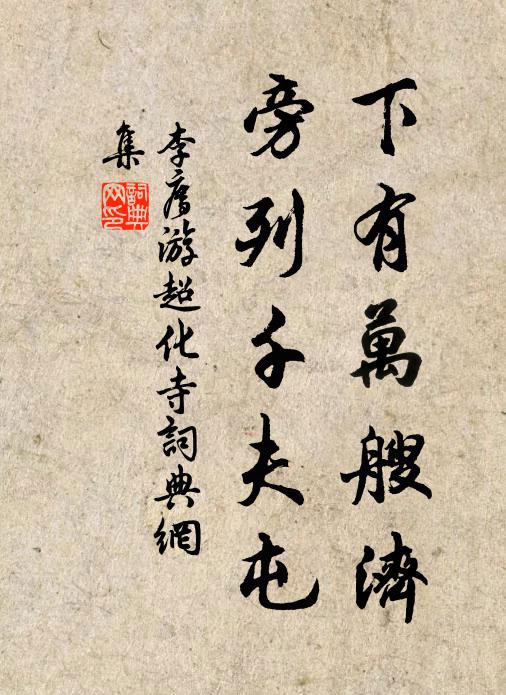 下有萬艘濟
旁列千夫屯
李廌游超化寺詞典網
集
詞典網印